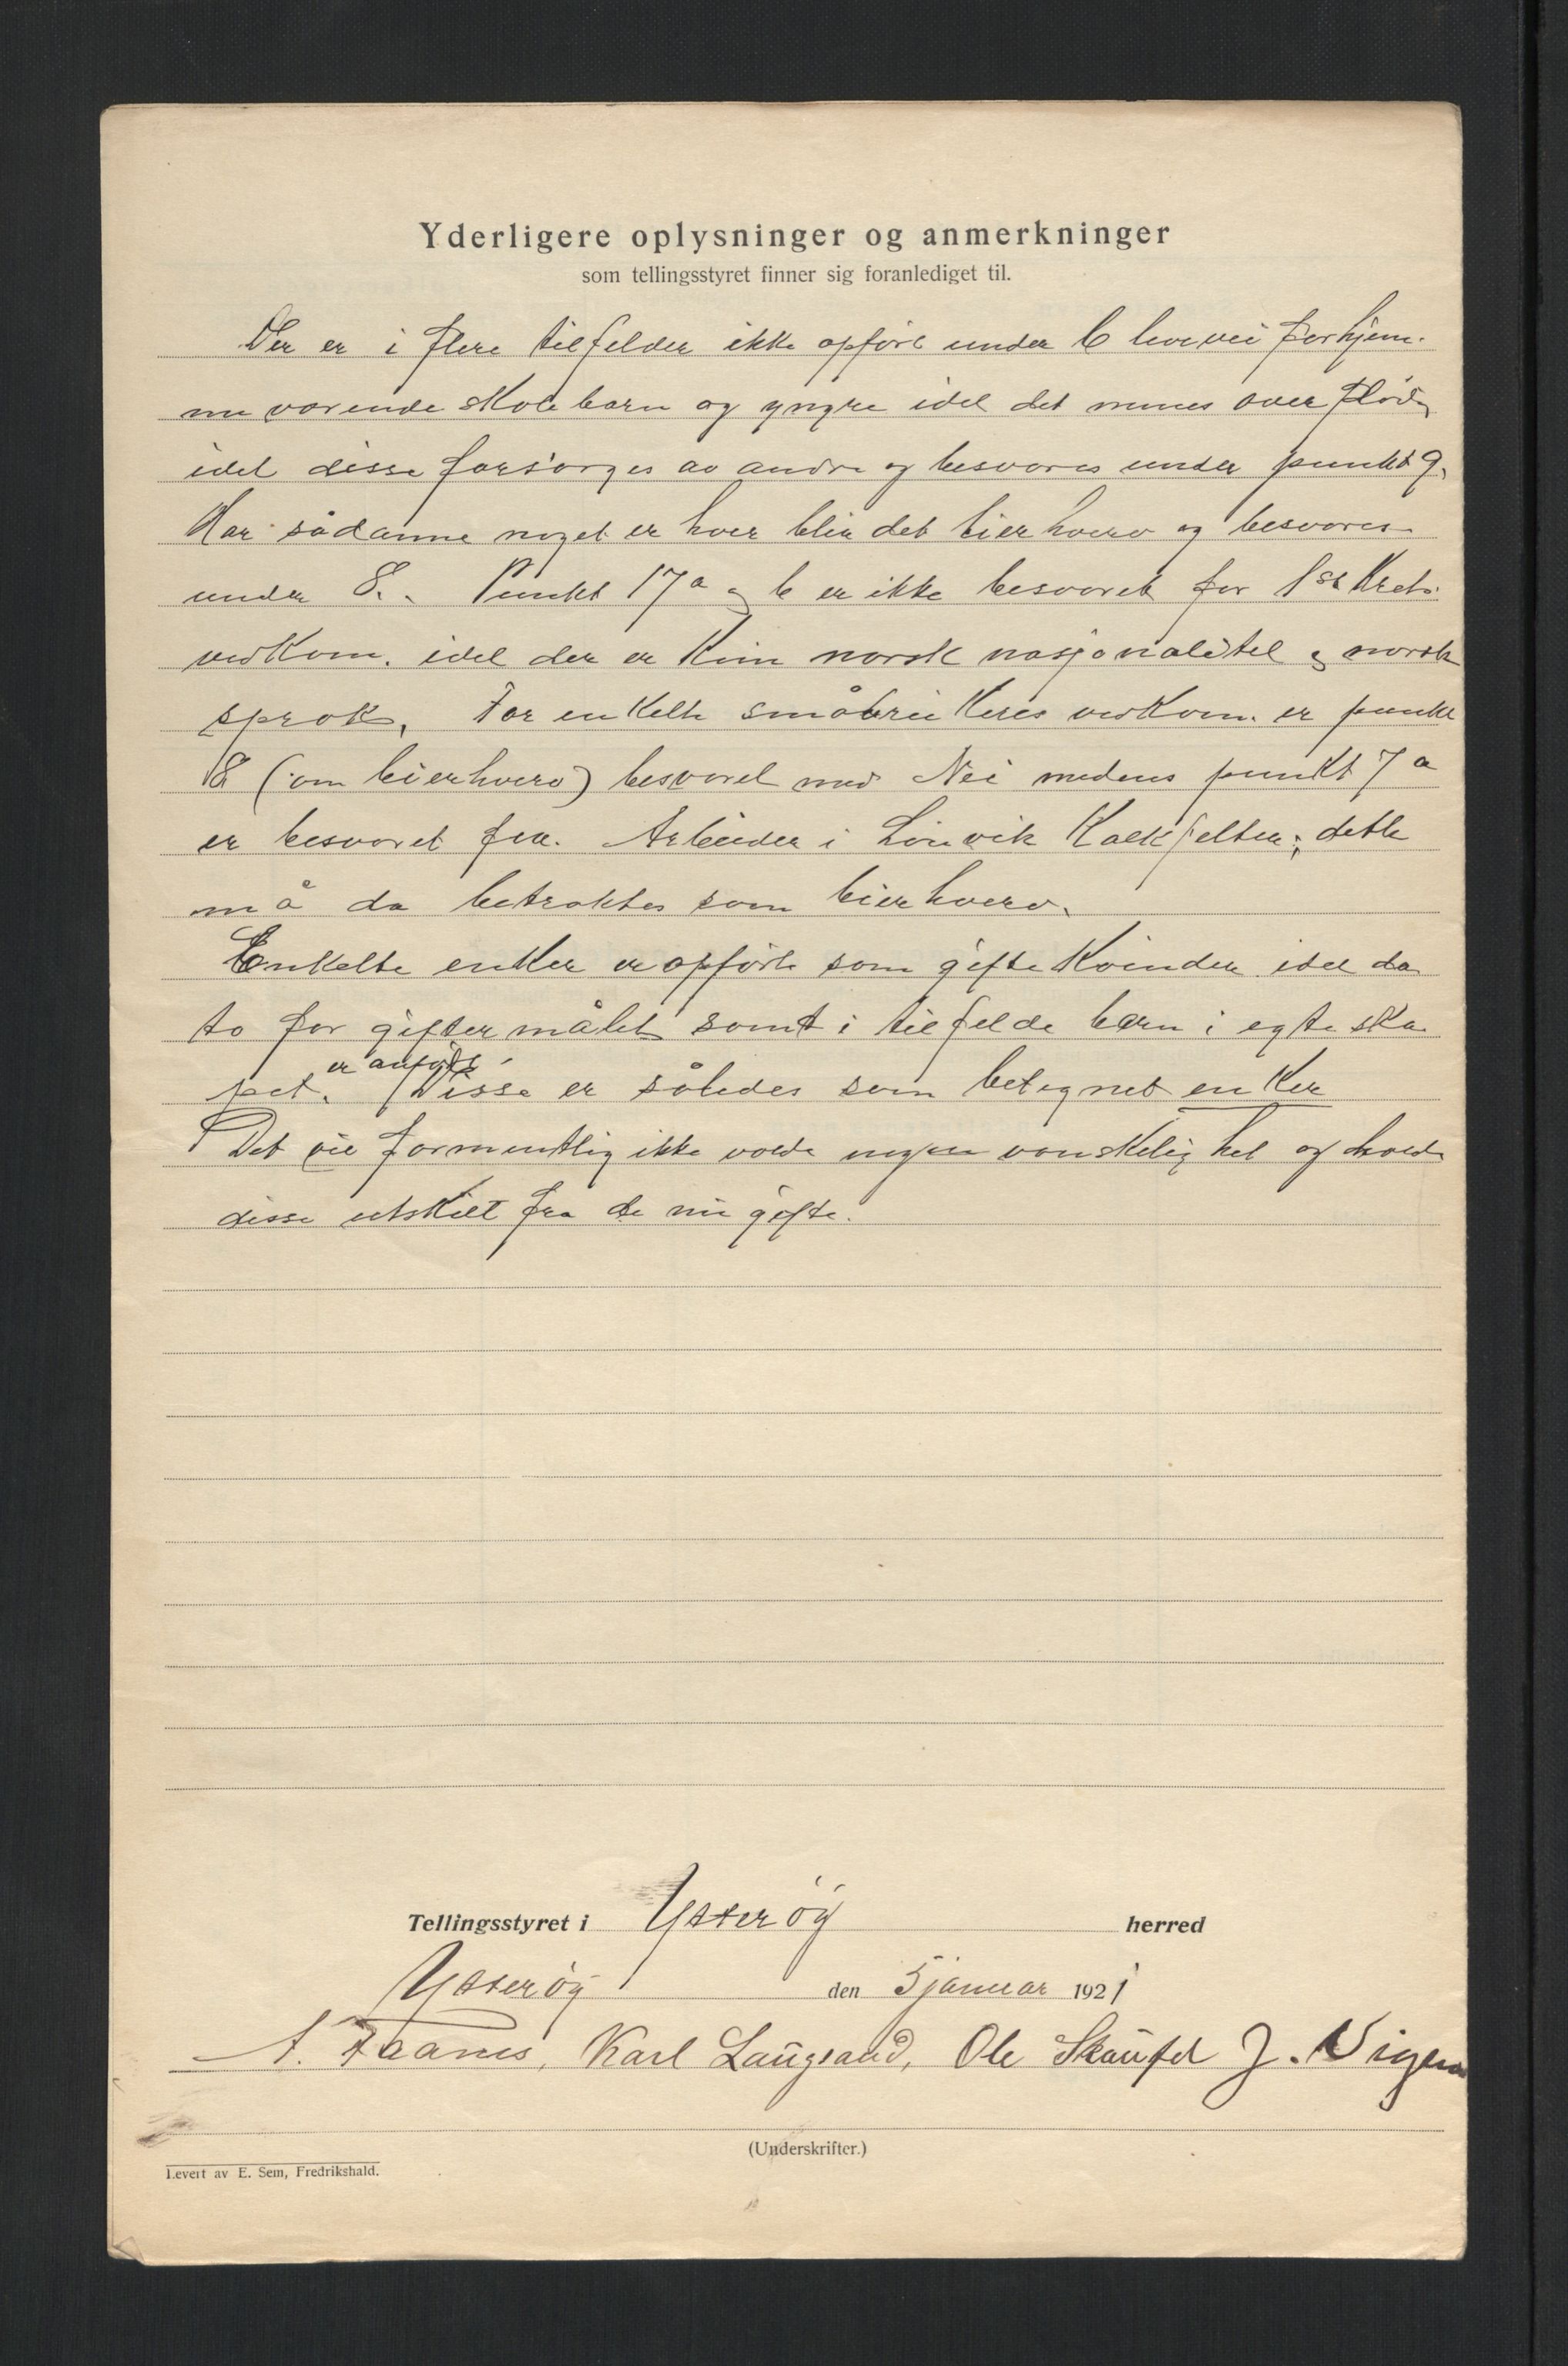 Yderligere oplysninger og anmerkninger
som tellingsstyret finner sig foranlediget til.
Der er i flere tilfelder ikke opført under 6 levevei for hjem.
mu værende skolebarn og yngre idet det menes overflød.
idet disse forsørges av andre og besvares under punkt 9.
Har sådanne noget erhver blir det bierhverv og besvares
under 8. Punkt 17 a og b er ikke besvaret for 1st Krets
vedkom. idet der er kun norsk nasjonalitet og norsk
sprok. For enkelte småbrukeres vedkom. er punkt
8 (om bierhverv) besvaret med Nei medens punkt 7 a
er besvaret f.ex. Arbeider i Lörvik Kalkfelter; dette
må da betraktes som bierhverv.
Enkelte enker er opførte som gifte Kvinder idet da
to for giftermålet samt i tilfelde barn i egteska
er anført
pet. Disse er således som betegnet enker
Det vil formentlig ikke volde nogen vanskelighet og holde
disse utskilt fra de nu gifte.
Tellingsstyret i Ytterøy herred
Ytterøy den 5 januar 1921
A. Faanes, Karl Laugsand, Ole Skaufel J. Vigen
(Underskrifter.)
Levert av E. Sem, Fredrikshald.